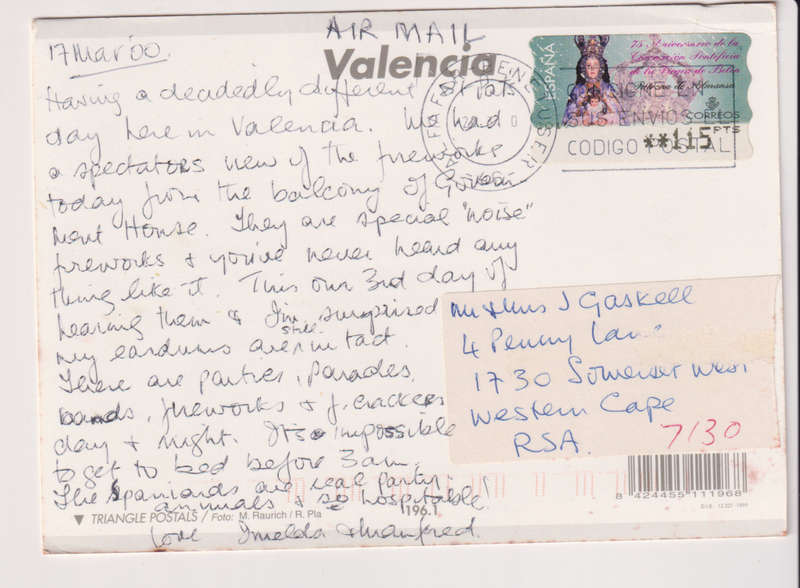 AIR MAIL
17 Mar 00.
Valencia
Having a decidedly different St Pats
day here in Valencia. We had
a spectators view of the fireworks
today from the balcony of Govern
ment House. They are special "noise"
fireworks & you've never heard any
thing like it. This our 3rd day of
hearing them & I'm surprised
my eardrums are still intact.
There are parties, parades,
bands, fireworks & f. crackers
day & night. Its impossible
to get to bed before 3am.
The Spaniards are real party
animals & so hospitable.
Love Imelda & Manfred.
ESPAÑA
75 Aniversario de la
Coronación Pontificia
de la Virgen de Belén
Patrona de Almansa
CORREOS
**115 PTS
CONSIGNE EN
SUS ENVIOS EL
CODIGO POSTAL
Mr & Mrs J Gaskell
4 Penny Lane
1730 Somerset West
Western Cape
RSA.
7130
8 424455 111968
▼ TRIANGLE POSTALS / Foto: M. Raurich / R. Pla
196.1